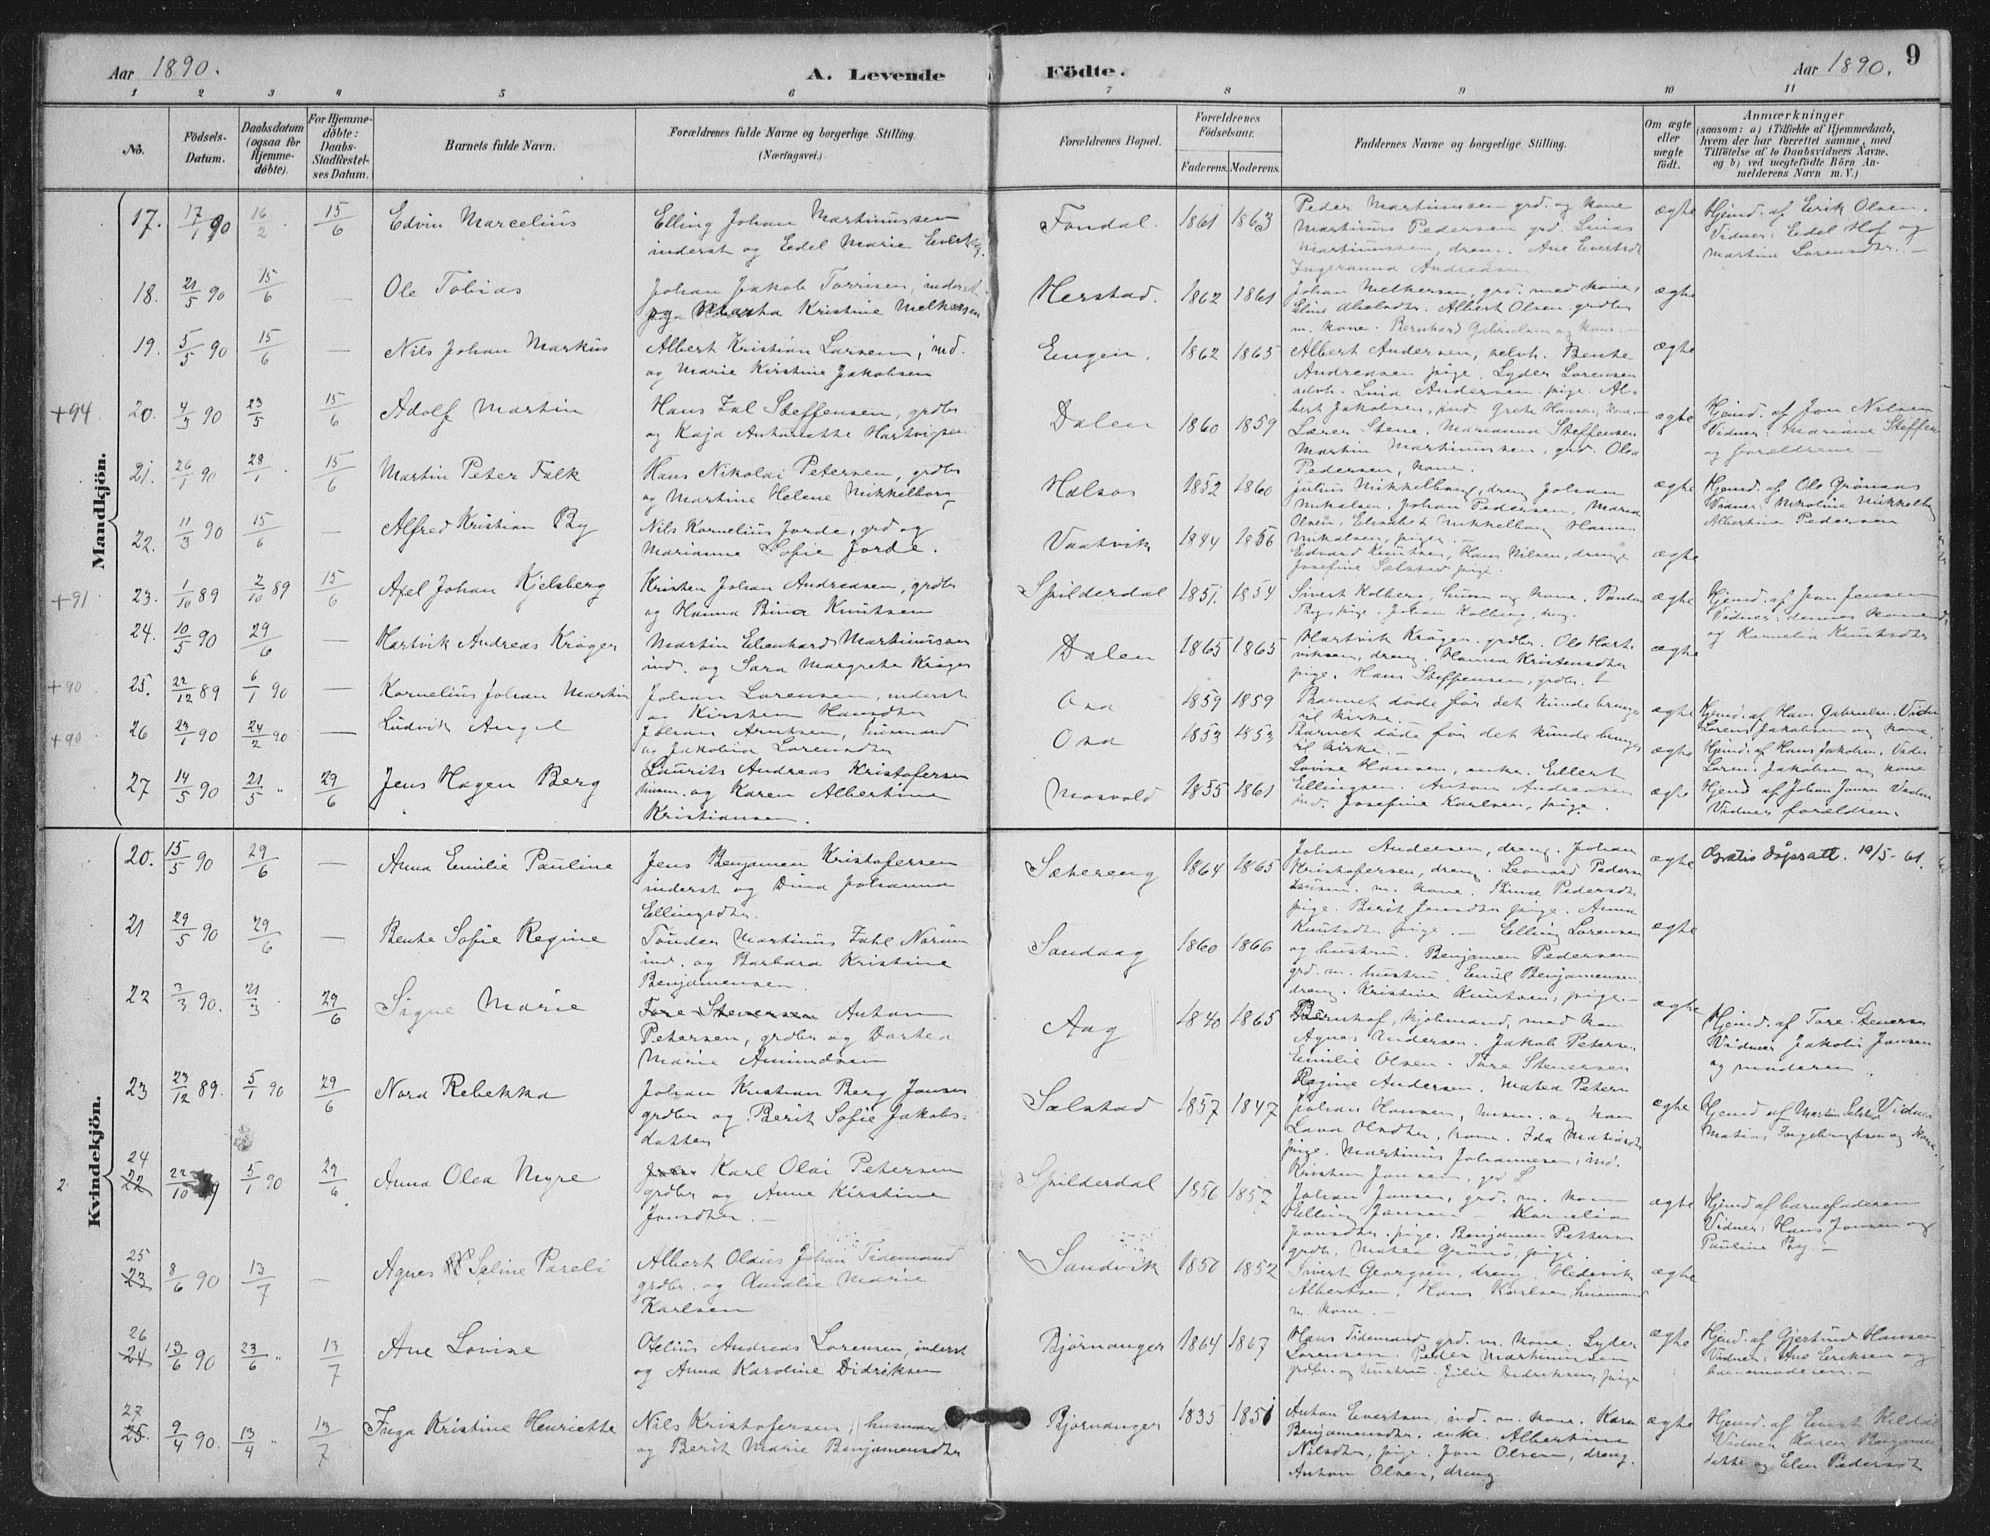 Aar 1890. A. Levende Födte. Aar 1890. 9
1 2 3 4 5 6 7 8 9 10 11
No. Födsels-Datum. Daabsdatum (ogsaa for Hjemme-döbte). For Hjemme-döbte: Daabs-Stadfæstel-ses Datum. Barnets fulde Navn. Forældrenes fulde Navne og borgerlige Stilling. (Næringsvei.) Forældrenes Bopæl. Forældrenes Födselsaar. Faderens. Moderens. Faddernes Navne og borgerlige Stilling. Om ægte eller uægte födt. Anmærkninger (saasom: a) i Tilfælde af Hjemmedaab, hvem der har forrettet samme, med Tilföielse af to Daabsvidners Navne, og b) ved uægtefödte Börn An-melderens Navn m. V.)
Mandkjön.
17. 17/1 90 16/2 15/6 Edvin Marcelius Elling Johan Martinussen
inderst og Edel Marie Fondal. 1861 1863 Peder Martinussen grd. og kone
Martinus Pedersen grd. ægte Hjemd. af Erik Olsen.
Vidner: Edel Hof og
Martine Lorensdtr. –
18. 21/5 90 15/6 — Ole Tobias Johan Jakob Torrisen, inderst
og Kristine Melkersen Herstad. 1862 1861 Johan Melkersen, grd. med kone,
Albert Olsen grdbr.
m. kone. Bernhard Gabrielsen og kone. – ægte
19. 5/5 90 15/6 — Nils Johan Markus Albert Kristian Larsen, ind.
og Marie Kirstine Jakobsen Engen. 1862 1865 Albert Andersen, selvh. Bente
Andreasen pige. Lyder Lorensen ægte
+94 20. 4/3 90 23/5 15/6 Adolf Martin Hans Zal Steffensen, grdbr
og Kaja Antonette Hartvigsen Dalen 1860 1859 Lærer Stene. Marianna Steffensen
Martin Martinussen, grd. Olea
Pedersen, kone. ægte Hjemd. af Jon Nilsen
Vidner: Mariane Steffen
og forældrene –
21. 26/1 90 28/1 15/6 Martin Peter Falk Hans Nikolai Petersen, grdbr
og Martine Helene Mikkelborg 1852 1860 Julius Mikkelborg, dreng Johan
Nikalsen, Johan Pedersen, ægte Hjemd. af Ole Grönaas
Albertine Pedersen
22. 11/3 90 15/6 — Alfred Kristian By Nils Kornelius Jorde, grd og
Marianne Sofie Jorde. Vaatvik 1844 1856 Edvard Knutsen, Hans Nilsen, drenge
Josefine Sælstad pige. ægte
+91 23. 1/10 89 2/10 89 15/6 Axel Johan Kjelsberg Kristen Johan Andreasen, grdbr
og Hanna Knutsen Spilderdal 1851. 1854 Sivert Kolberg, husm og kone.
By, pige. Johan Kolberg, dreng. ægte Hjemd. af Jon Jensen
Vidner: dennes kone
og Kornelia Knutsdtr
24. 10/5 90 29/6 — Hartvik Andreas Kröger Martin Edenhard Martinussen
ind. og Sara Margrete Kröger Dalen 1865 1865 Hartvik Kröger. grdbr. Ole Hart-
viksen, dreng. Hanna Kristensdtr
pige. Hans Steffensen, grdbr. ægte
+90 25. 22/12 89 6/1 90 — Kornelius Johan Martin Johan Lorensen, inderst
og Kirsten Hansdtr Osa 1859 1859 Barnet döde för det kunde bringes
til kirke. ægte Hjemd. af Hans Gabrielsen. Vidn
Lorens Jakobsen og kone.
+90 26 23/1 90 24/2 90 — Ludvik Angel Johan Arntsen, husmand
og Jakobia Lorensdtr Osa 1853 1853 Barnet döde för det kunde bringes
til kirke. – ægte Hjemd. af Hans Jakobsen, Vidn
Lorens Jakobsen og kone
27 14/5 90 21/5 29/6 Jens Hagen Berg Laurits Andreas Kristofersen
husm. og Karen Albertine
Kristiansen. Mosvold 1855 1861 Lovise Hansen, enke. Ellert
Ellingsen. Antom Andreassen
ind. Josefine Karlsen, pige. ægte Hjemd af Johan Jonsa
Vidner forældren.
Kvindekjön.
20. 15/5 90 29/6 — Anna Emilie Pauline Jens Benjamen Kristofersen
inderst og Dina Johanna
Ellingsdtr. Sætereng 1864 1865 Johan Andersen, dreng. Johan
Kristofersen, dreng. Leonard Peders
pige. Berit Jensdtr pige. Anna
Knutsdtr pige. – ægte Gratis dåpsatt. 19/5-61.
21 29/5 90 29/6 — Bente Sofie Regine Tönder Martinus Zahl Norum
ind. og Barbara Kristine
Benjamensen. Sandaag 1860 1866 Elling Lorensen
og hustru. Benjamen Pedersen
grd. m. hustru. Emil Benjamensen
dreng. Kristine Knutsen, pige. – ægte
22 3/3 90. 21/3 29/6 Signe Marie Tore Stenersen Anton
Petersen, grdbr og Dortea
Marie Amundsen Aag 1840 1865 Bernhof, Hjolmand, med kone
Agnes Andersen. Jakob Petersen
Emilie Olsen. Tore Stenersen
Regine Andersen. Matea Petern ægte Hjemd. af Tore Stenersen
Vidner Jakobs Jonsen
og moderen.
23 23/12 89. 5/1 90 29/6 Nora Rebekka Johan Kristian Berg Jonsen
grdbr og Berit Sofie Jakobs-
datter Sælstad 1857 1847 Johan Hansen, husm. og kone
Lava Olsdtr, kone. Ida Matiasdtr
pige. Martinus Johannesen, ind.
Kristen Jonsen, ægte Hjemd af Martin Selstad Vidner
Matias Ingebrigtsen og kone.
2 24 22 22/10 5/1 90 29/6 Anna Olea Myre Karl Olai Petersen
grdbr og Anne Kirstine
Jonsdtr. – Spilderdal 1856 1857 Johan Jonsen, grd. m. kone
Elling Jonsen – Kornelia
Jonsdtr. pige. Benjamen Pettersen
grdbr. Matea Grönö, pige. ægte Hjemd af barnefaderen
Vidner: Hans Jonsen og
Pauline By –
25 23 8/6 90 13/7 — Agnes Saline Pareli Albert Olaus Johan Tidemand
grdbr. og Amalie Marie
Karlsen Sandvik 1850 1852 Sivert Georgsen, dreng. Hedevik
Albertsen, Hans Karlsen, husmand
m. kone. – ægte
26 24 13/6 90 23/6 13/7 Ane Lovise Otelius Andreas Lorensen, inderst
og Anna Karoline Didriksen Björnanger 1864 1867 Hans Tidemand grd. m. kone. Lyder
Lorensen. Peder Martinussen
grdbr. og hustru. Julie Didriksen, pige ægte Hjemd. af Gjertrud Hansen
Vidner: Ane Eriksen og
barnemoderen. –
27 25. 9/4 90. 13/4 13/7 Inga Kristine Henriette Nils Kristofersen, husmand
og Berit Marie Benjamensdtr Björnanger 1835 1851 Anton Evertsen, ind. m. kone. Karen
Benjamensdtr. enke. Albertine
Nilsdtr, pige. Jon Olsen, dreng.
Anton Olsen, dreng ægte Hjemd. af Evert Kildal
Vidner Karen Benjamens
datter og Elen Pedersdtr